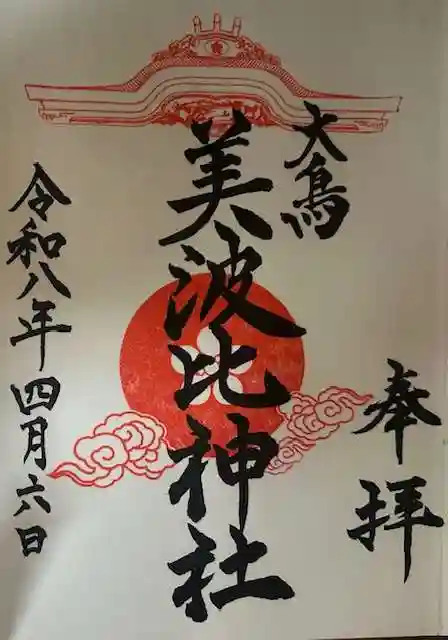 奉拝
大鳥
美波比神社
令和八年四月六日